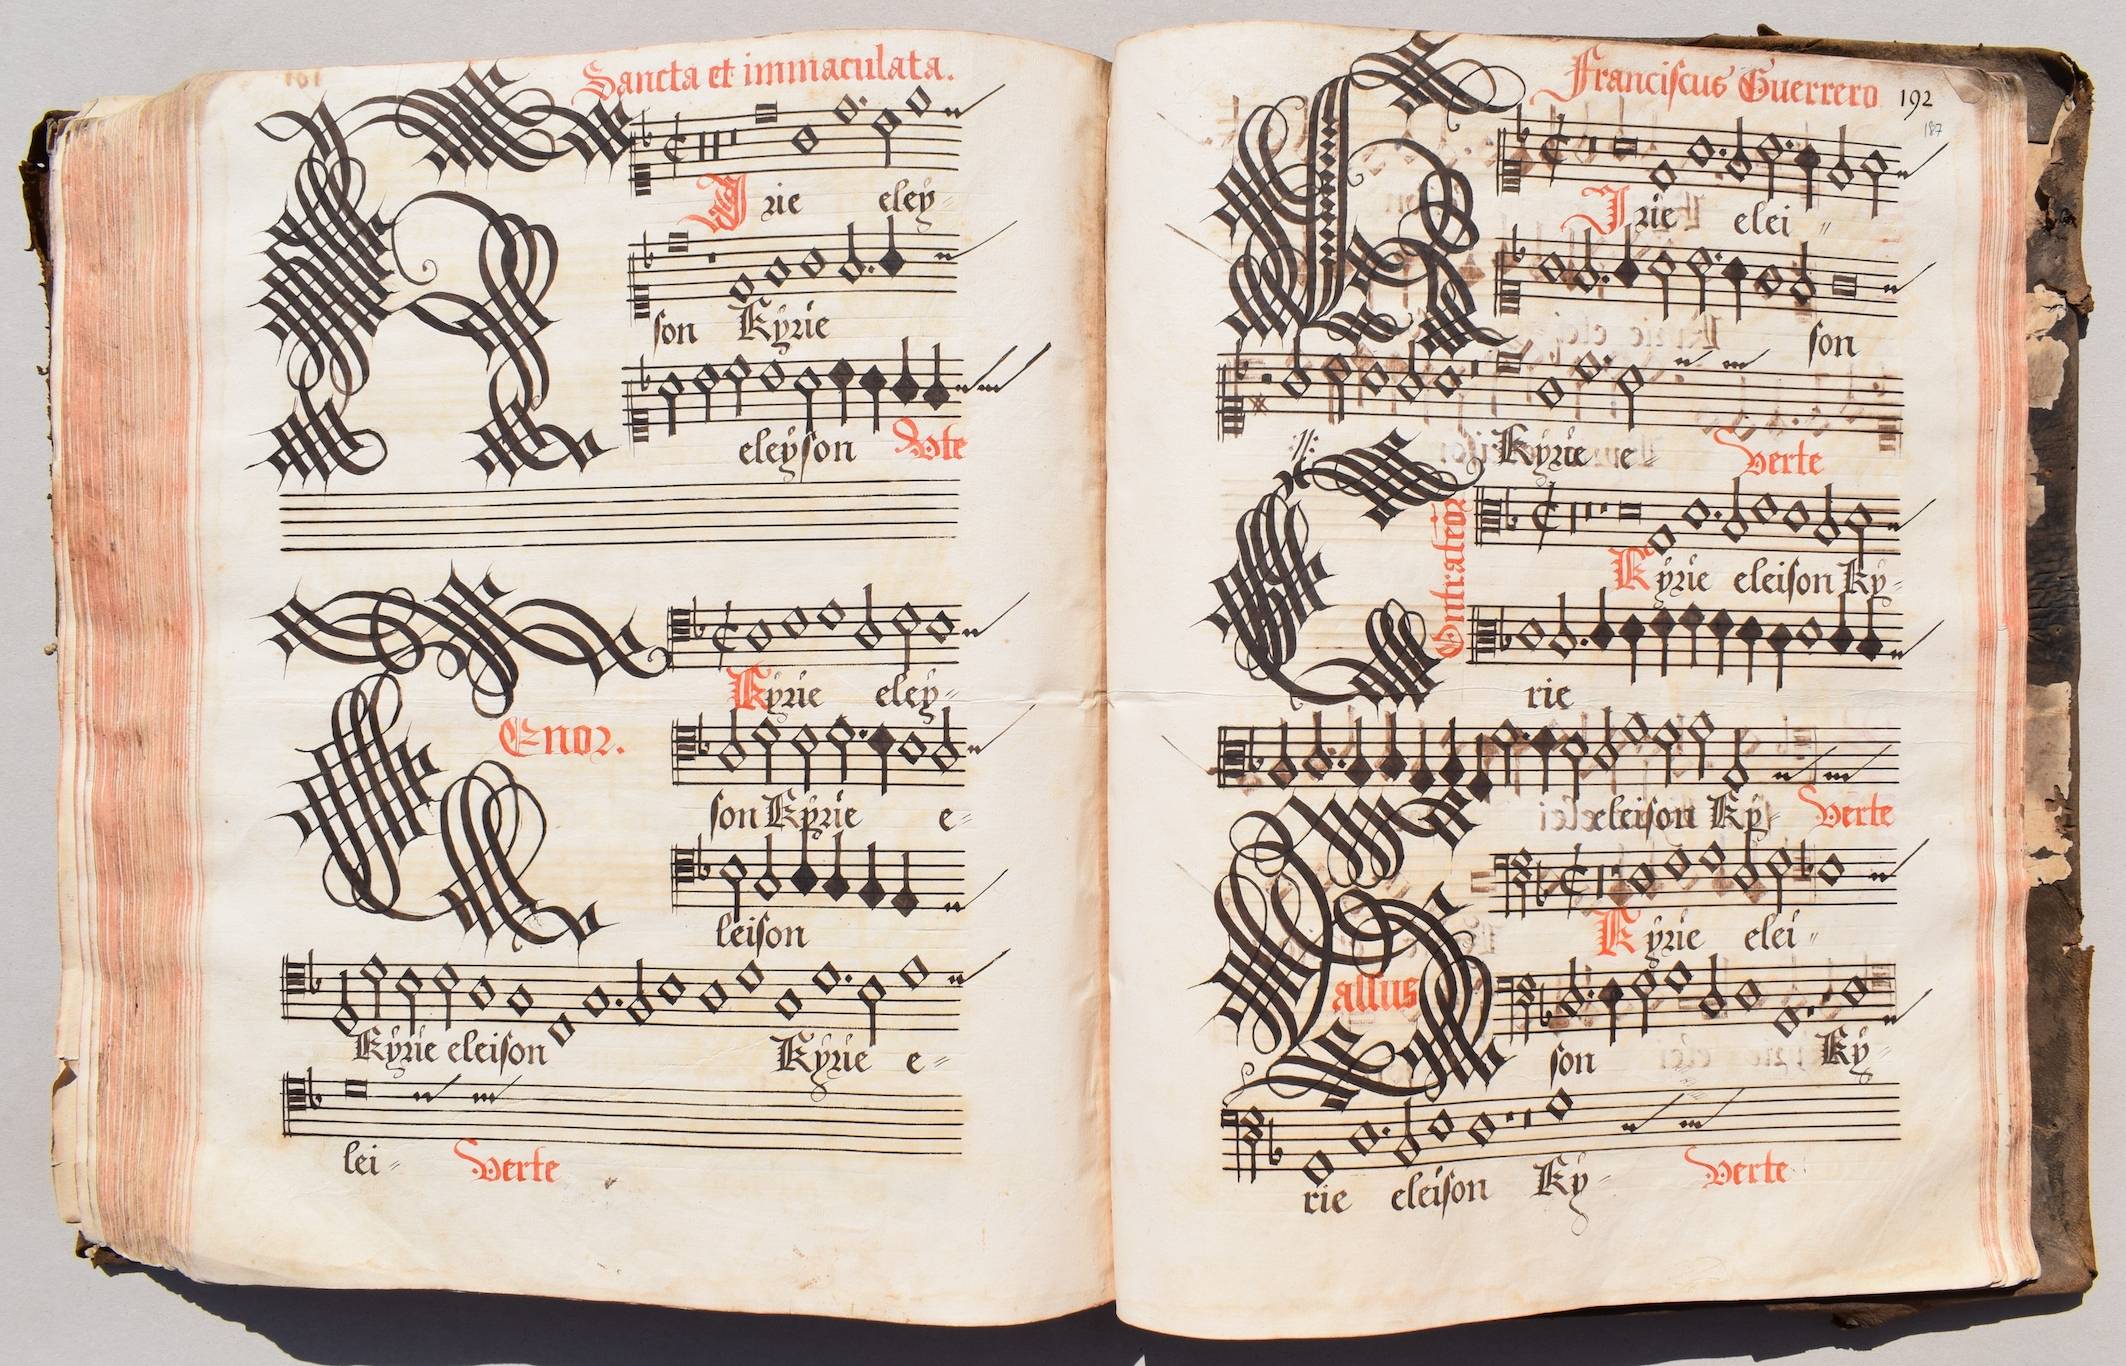 Sancta et immaculata.
Irie eley=
son Kyrie
eleyson Vte
Kyrie eley=
Enor.
son Kyrie e=
leison
Kyrie eleison Kyrie e=
lei= Verte
Franciscus Guerrero 192
187
Irie elei=
son
Kyrie e= Verte
Ontratenor
Kyrie eleison Ky=
rie
eleison Ky= Verte
Kyrie elei=
assus
son Ky=
rie eleison Ky= Verte